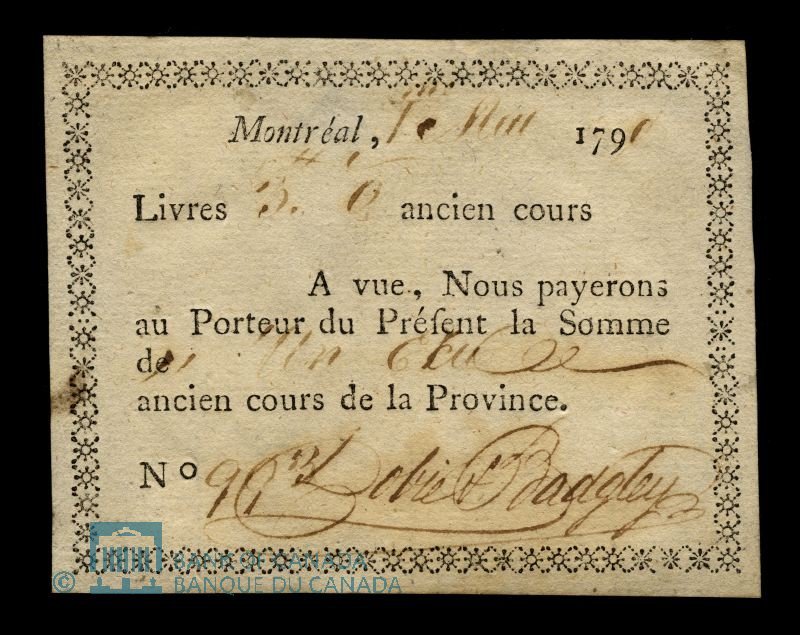 Montréal, 1790
Livres 3. 0 ancien cours
A vue, Nous payerons
au Porteur du Préſent la Somme
de Un Ecu
ancien cours de la Province.
No Dobie & Badgley
© BANK OF CANADA
BANQUE DU CANADA